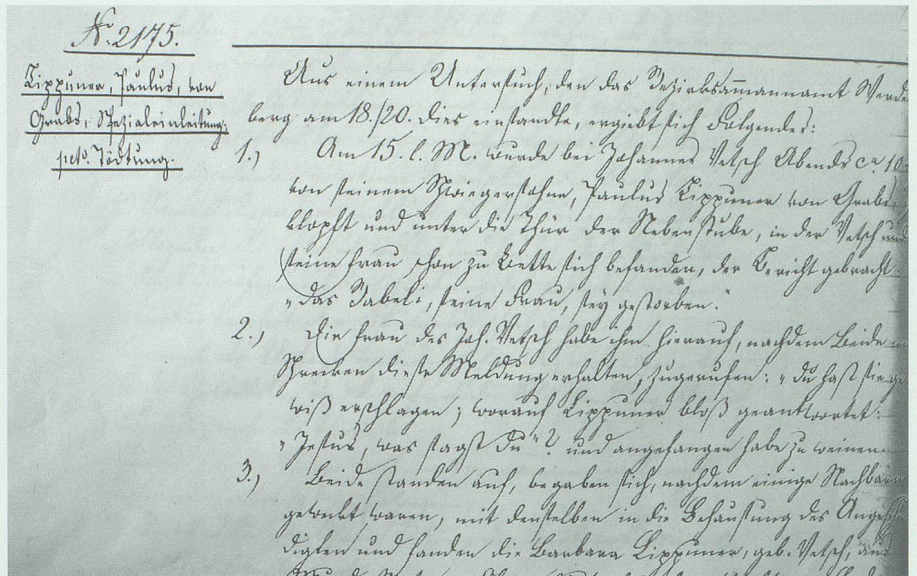 N. 2175.
Lippuner, Paulus, von
Grabs, Spezialeinleitung,
pcto. Tödtung.
Aus einem Untersuch, den das Bezirksammannamt Werden
berg am 18./20. dies einsandte, ergiebt sich Folgendes:
1.) Am 15. l. M. wurde bei Johannes Vetsch Abends ca. 10
von seinem Schwiegersohne, Paulus Lippuner von Grabs
klopft und unter die Thür der Nebenstube, in der Vetsch und
seine Frau schon zu Bette sich befanden, der Bericht gebracht:
"Das Babeli, seine Frau, sey gestorben."
2.) Die Frau des Joh. Vetsch habe ihm hierauf, nachdem Beide
Schrecken diese Meldung erhalten, zugerufen: "du hast sie ge
wiß erschlagen; worauf Lippuner bloß geantwortet:
"Jesus, was sagst du"? und angefangen habe zu weinen.
3.) Beide standen auf, begaben sich, nachdem einige Nachbarn
geweckt waren, mit denselben in die Behausung des Angesch
digten und fanden die Barbara Lippuner, geb. Vetsch, aus